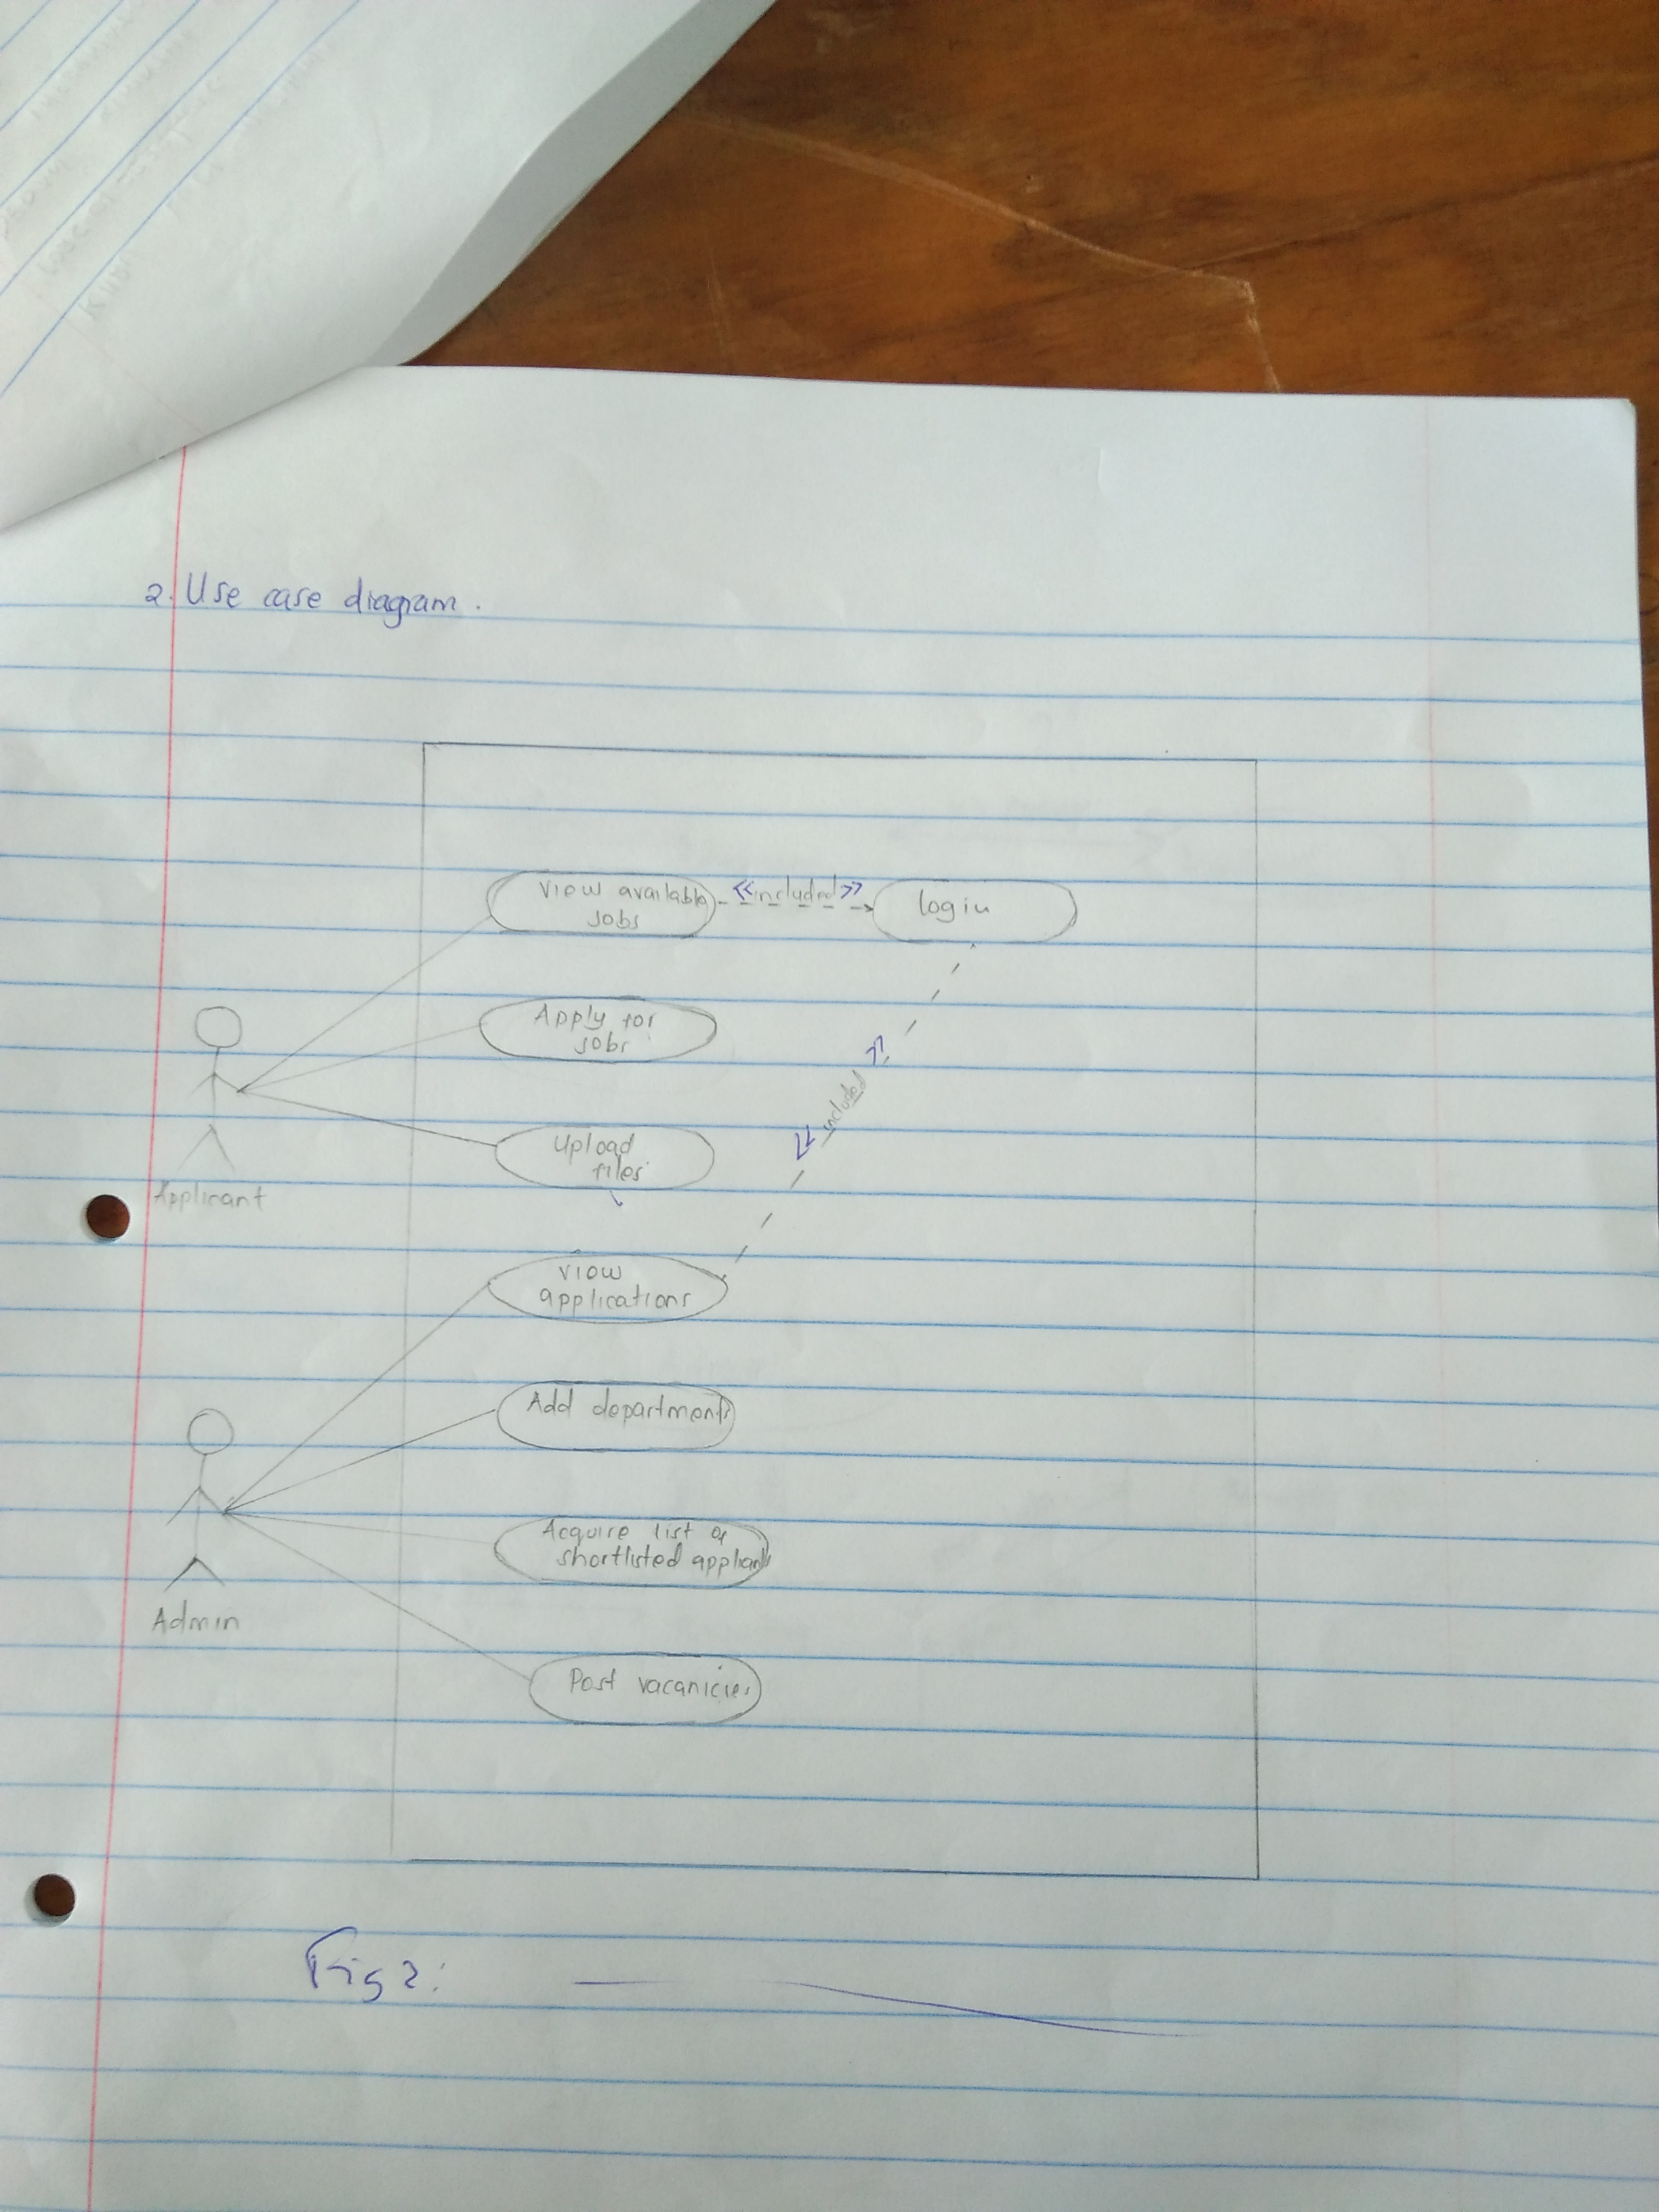 2. Use case diagram.
View available
jobs
<<included>>
login
Apply for
jobs
Upload
files
<< included >>
Applicant
view
applications
Add departments
Acquire list of
shortlisted
Admin
Post vacanicies
Fig 2: